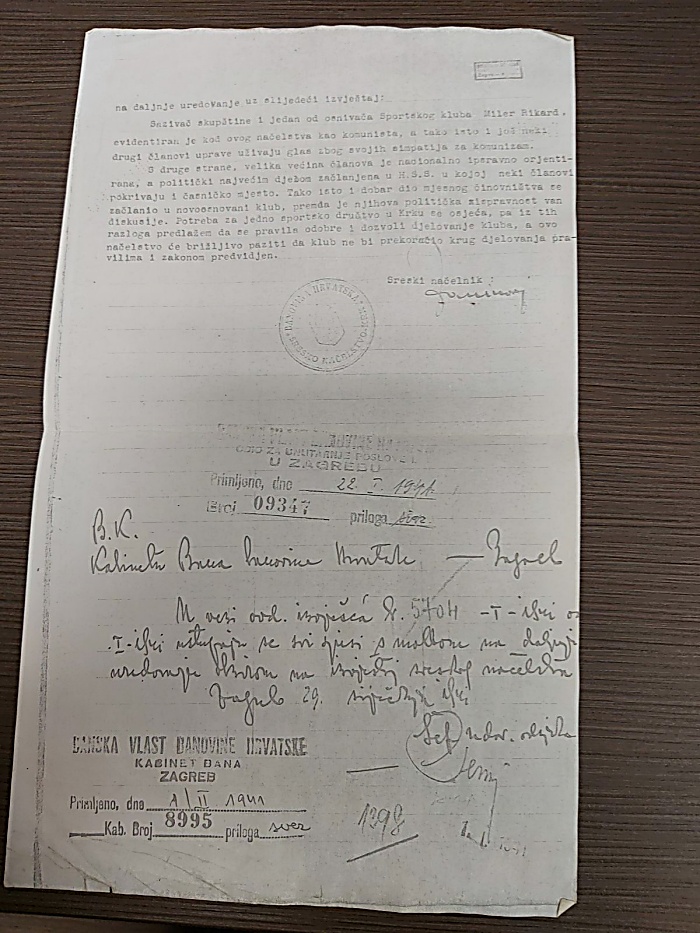 na daljnje uredovanje uz slijedeći izvještaj:
Sazivač skupštine i jedan od osnivača Sportskog kluba Miler Rikard,
evidentiran je kod ovog načelstva kao komunista, a tako isto i još neki
drugi članovi uprave uživaju glas zbog svojih simpatija za komunizam.
S druge strane, velika većina članova je nacionalno ispravno orjenti-
rana, a politički najvećim djelom začlanjena u H.S.S. u kojoj neki članovi
pokrivaju i časničko mjesto. Tako isto i dobar dio mjesnog činovništva se
začlanio u novoosnovani klub, premda je njihova politička ispravnost van
diskusije. Potreba za jedno sportsko društvo u Krku se osjeća, pa iz tih
razloga predlažem da se pravila odobre i dozvoli djelovanje kluba, a ovo
načelstvo će brižljivo paziti da klub ne bi prekoračio krug djelovanja pra-
vilima i zakonom predvidjen.
Sreski načelnik :
BANOVINA HRVATSKA
SRESKO NAČELSTVO
ODIO ZA UNUTARNJE POSLOVE
U ZAGREBU
Primljeno, dne 22. I. 1941.
Broj 09347 priloga svez.
B.K.
Kabinetu Bana banovine Hrvatske — Zagreb
U vezi ovd. izvješća br. 5704 -I-
ustupaju se svi spisi s molbom na daljnje
uredovanje obzirom na izvještaj sreskog načelnika
Zagreb 29. siječnja
Šef udov. odsjeka
BANSKA VLAST BANOVINE HRVATSKE
KABINET BANA
ZAGREB
Primljeno, dne 1/II 1941
Kab. Broj 8995 priloga svez
1398